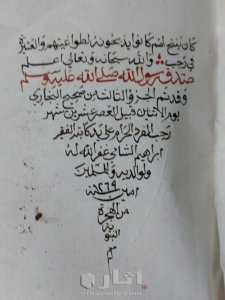 كان ينتج لهم كانوا يذبحونه لطواغيتهم والعتيرة
في رجب والله سبحانه وتعالى اعلم
صدق رسول الله صلى الله عليه وسلم
وقد تم الجزو الثالثين صحيح البخاري
يوم الاثنين قبيل العصر عشرين شهر
رجب الفرد الحرام على يد كاتبه الفقير
ابراهيم الشامي غفر الله له
ولوالديه وللمسلمين
امين ١٢٦٩
من الهجرة
النبو
ية
م
اثارة